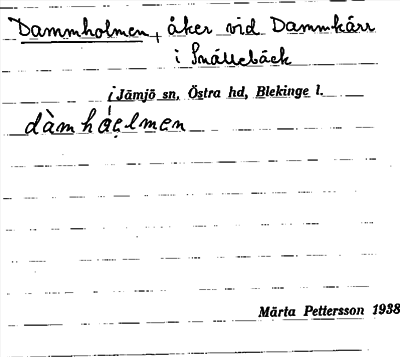 Dammholmen, åker vid Dammkärr
i Snällebäck
i Jämjö sn, Östra hd, Blekinge l.
Märta Pettersson 1938